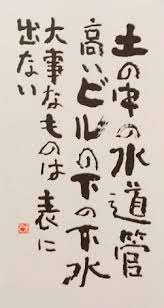 土の中の水道管
高いビルの下の下水
大事なものは表に
出ない